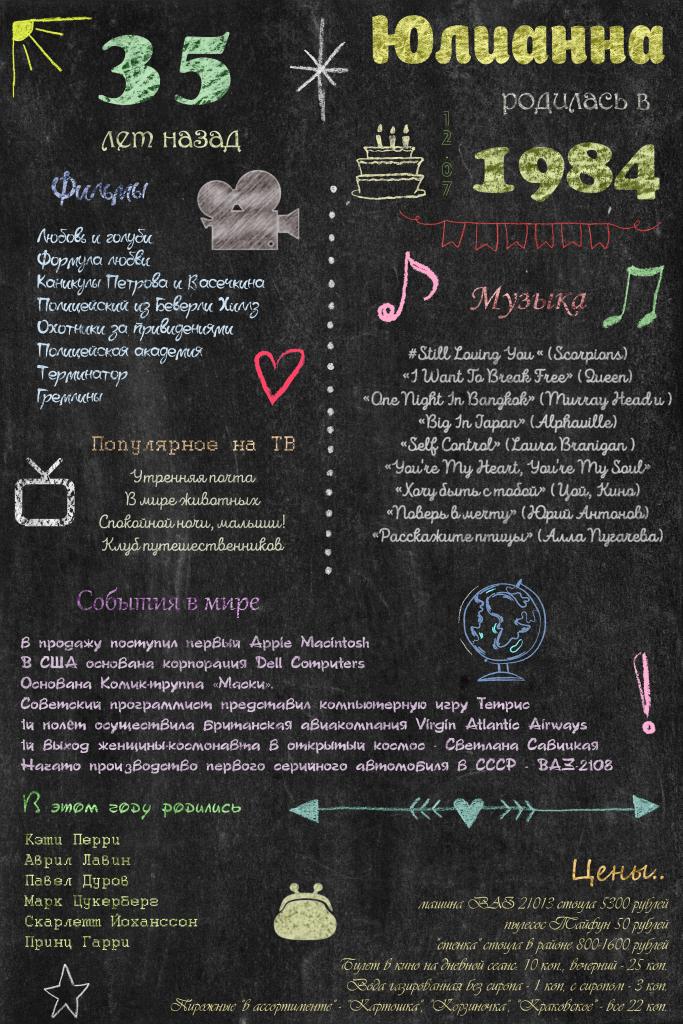 35
лет назад
Юлианна
родилась в
12.07
1984
Фильмы
Любовь и голуби
Формула любви
Каникулы Петрова и Васечкина
Полицейский из Беверли Хиллз
Охотники за привидениями
Полицейская академия
Терминатор
Гремлины
Популярное на ТВ
Утренняя почта
В мире животных
Спокойной ночи, малыши!
Клуб путешественников
Музыка
#Still Loving You « (Scorpions)
«I Want To Break Free» (Queen)
«One Night In Bangkok» (Murray Head и )
«Big In Japan» (Alphaville)
«Self Control» (Laura Branigan )
«You're My Heart, You're My Soul»
«Хочу быть с тобой» (Цой, Кино)
«Поверь в мечту» (Юрий Антонов)
«Расскажите птицы» (Алла Пугачева)
События в мире
В продажу поступил первый Apple Macintosh
В США основана корпорация Dell Computers
Основана Комик-труппа «Маски».
Советский программист представил компьютерную игру Тетрис
1й полёт осуществила британская авиакомпания Virgin Atlantic Airways
1й выход женщины-космонавта в открытый космос - Светлана Савицкая
Начато производство первого серийного автомобиля в СССР - ВАЗ-2108
В этом году родились
Кэти Перри
Аврил Лавин
Павел Дуров
Марк Цукерберг
Скарлетт Йоханссон
Принц Гарри
Цены..
машина ВАЗ 21013 стоила 5300 рублей
пылесос Тайфун 50 рублей
"стенка" стоила в районе 800-1600 рублей
Билет в кино на дневной сеанс 10 коп., вечерний - 25 коп.
Вода газированная без сиропа - 1 коп, с сиропом - 3 коп.
Пирожные "в ассортименте" - "Картошка", "Корзиночка", "Краковское" - все 22 коп.